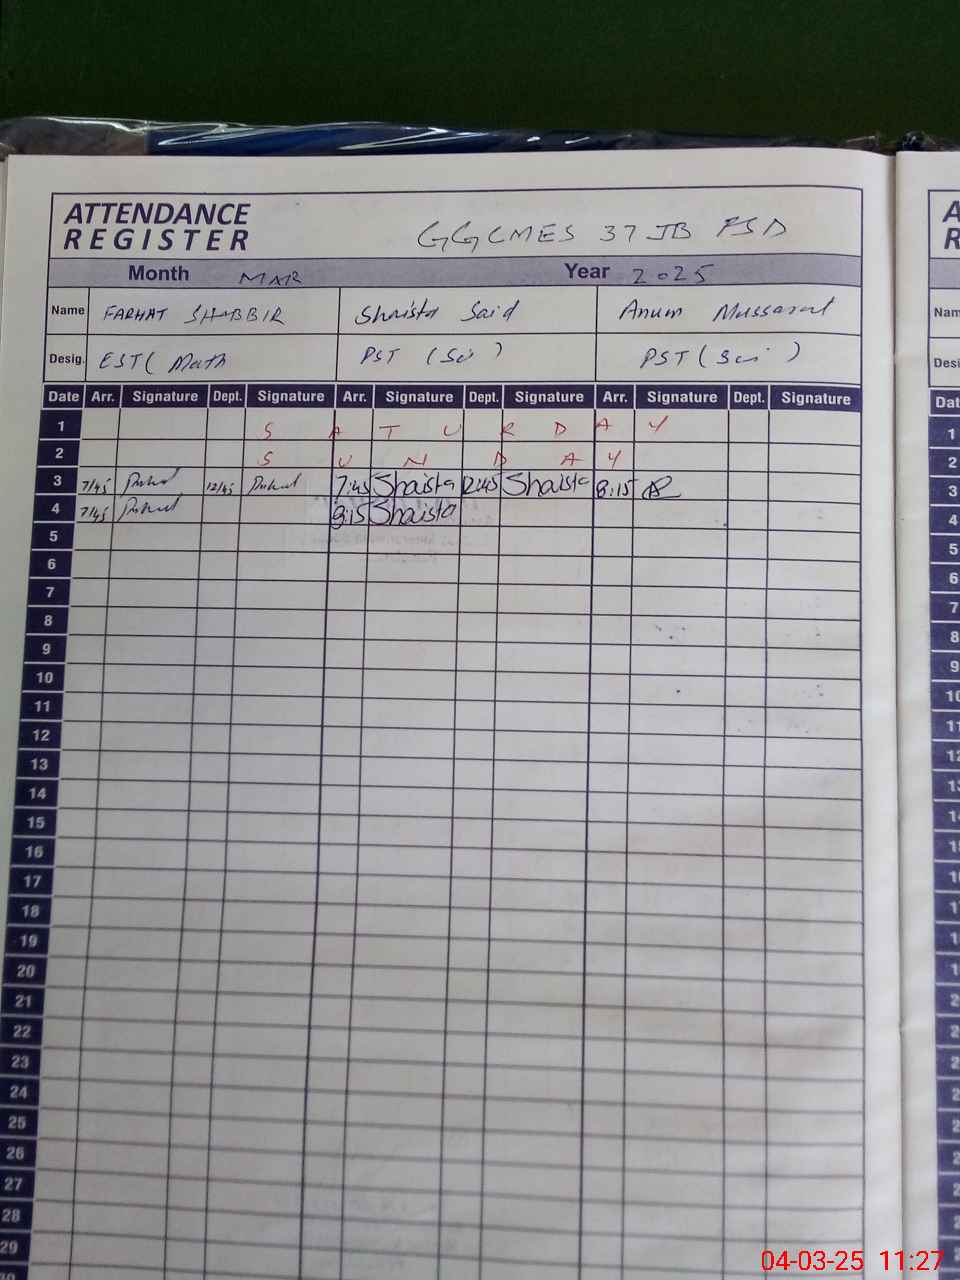 ATTENDANCE
REGISTER
GGCMES 37 JB FSD
Month MAR Year 2025
Name FARHAT SHABBIR Shaista Said Anum Mussarat
Desig. EST ( Math PST ( Sci ) PST ( Sci )
Date Arr. Signature Dept. Signature Arr. Signature Dept. Signature Arr. Signature Dept. Signature
1 SATURDAY
2 SUNDAY
3 7/45 12/45 7:45 Shaista 12:45 Shaista 8:15
4 7/45 8:15 Shaista
5
6
7
8
9
10
11
12
13
14
15
16
17
18
19
20
21
22
23
24
25
26
27
28
29
A
R
Nam
Desi
Dat
1
2
3
4
5
6
7
8
9
10
11
12
04-03-25 11:27